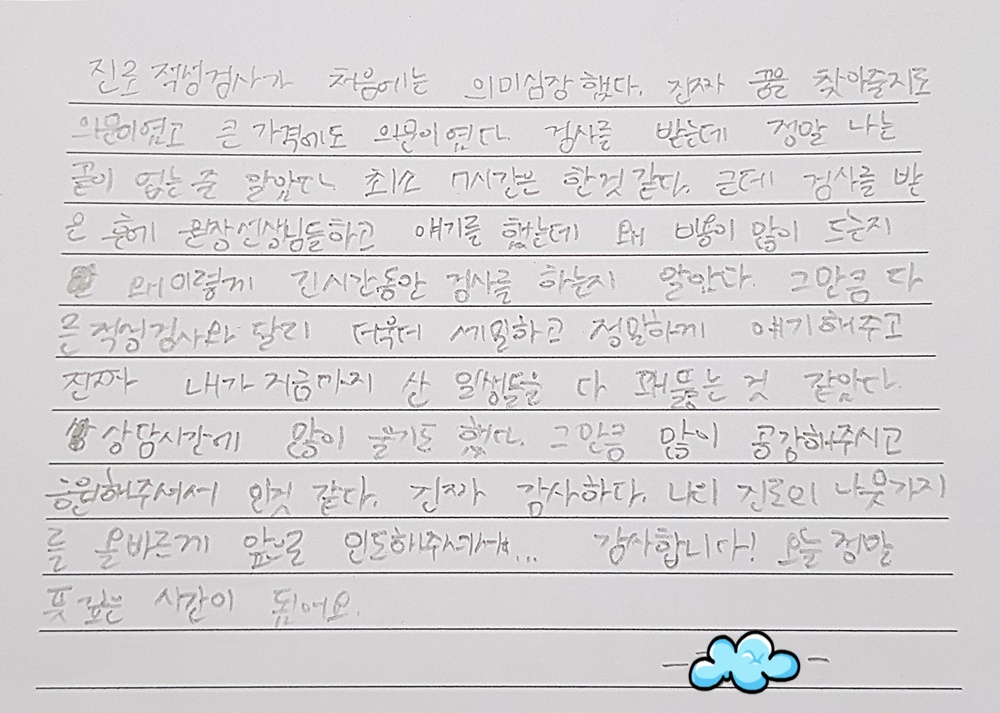 진로 적성검사가 처음에는 의미심장 했다. 진짜 꿈은 찾아줄지도
의문이였고 큰 가격에도 의문이였다. 검사를 받는데 정말 나는
끝이 없는 줄 알았다. 최소 7시간은 한것 같다. 근데 검사를 받
은 후에 원장선생님들하고 얘기를 했는데 왜 비용이 많이 드는지
왜 이렇게 긴시간동안 검사를 하는지 알았다. 그만큼 다
른 적성검사와 달리 더욱더 세밀하고 정밀하게 얘기해주고
진짜 내가 지금까지 산 일생들을 다 꽤뚫는 것 같았다.
상담시간에 많이 울기도 했다. 그만큼 많이 공감해주시고
응원해주셔서 인것 같다. 진짜 감사하다. 나의 진로의 나뭇가지
를 올바르게 앞으로 인도해주셔서... 감사합니다! 오늘 정말
뜻 깊은 시간이 됬어요.